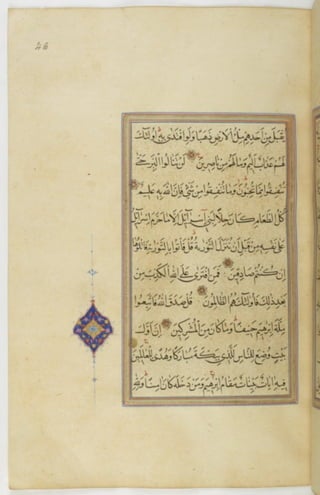 46
يُقْبَلَ مِنْ اَحَدِهِمْ مِلْءُ الْاَرْضِ ذَهَبًا وَلَوِ افْتَدٰى بِهٖ اُولٰئِكَ
لَهُمْ عَذَابٌ اَلِيمٌ وَمَا لَهُمْ مِنْ نَاصِرِينَ لَنْ تَنَالُوا الْبِرَّ حَتّٰى
تُنْفِقُوا مِمَّا تُحِبُّونَ وَمَا تُنْفِقُوا مِنْ شَىْءٍ فَاِنَّ اللّٰهَ بِهٖ عَلِيمٌ
كُلُّ الطَّعَامِ كَانَ حِلًّا لِبَنِى اِسْرَآئِلَ اِلَّا مَا حَرَّمَ اِسْرَآئِلُ
عَلٰى نَفْسِهٖ مِنْ قَبْلِ اَنْ تُنَزَّلَ التَّوْرٰيةُ قُلْ فَاْتُوا بِالتَّوْرٰيةِ فَاتْلُوهَا
اِنْ كُنْتُمْ صَادِقِينَ فَمَنِ افْتَرٰى عَلَى اللّٰهِ الْكَذِبَ مِنْ
بَعْدِ ذٰلِكَ فَاُولٰئِكَ هُمُ الظَّالِمُونَ قُلْ صَدَقَ اللّٰهُ فَاتَّبِعُوا
مِلَّةَ اِبْرٰهِيمَ حَنِيفًا وَمَا كَانَ مِنَ الْمُشْرِكِينَ اِنَّ اَوَّلَ
بَيْتٍ وُضِعَ لِلنَّاسِ لَلَّذِى بِبَكَّةَ مُبَارَكًا وَهُدًى لِلْعَالَمِينَ
فِيهِ اٰيَاتٌ بَيِّنَاتٌ مَقَامُ اِبْرٰهِيمَ وَمَنْ دَخَلَهُ كَانَ اٰمِنًا وَلِلّٰهِ